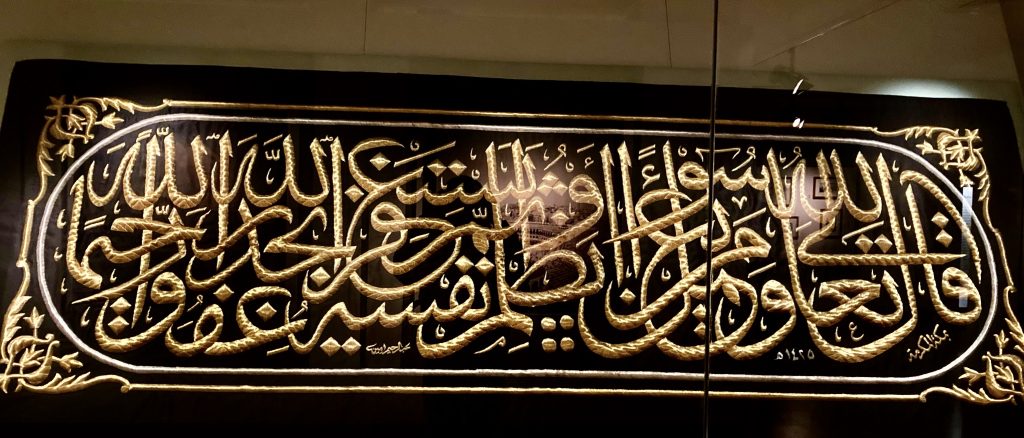 قال الله تعالى ومن يعمل سوءا أو يظلم نفسه ثم يستغفر الله يجد الله غفورا رحيما
بمكة المكرمة
١٤٢٥هـ
عبدالرحيم امين